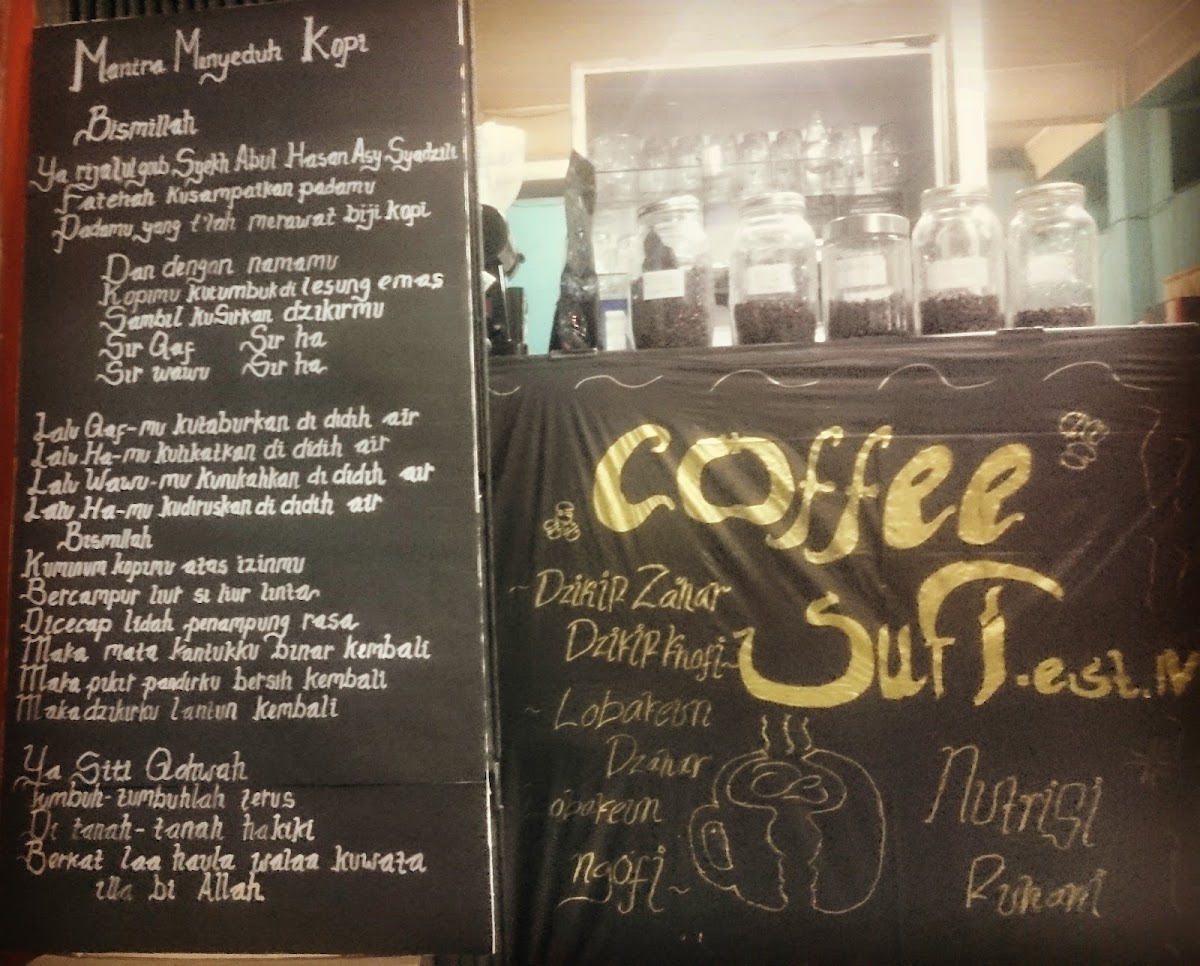 Mantra Menyeduh Kopi
Bismillah
Ya rijalulgaib Syekh Abul Hasan Asy Syadzili
Fatehah kusampaikan padamu
Padamu yang t'lah merawat biji kopi
Dan dengan namamu
Kopimu kutumbuk di lesung emas
Sambil kuSirkan dzikirmu
Sir Qaf Sir ha
Sir wawu Sir ha
Lalu Qaf-mu kutaburkan di didih air
Lalu Ha-mu kuhikatkan di didih air
Lalu Wawu-mu kunikahkan di didih air
Lalu Ha-mu kudiruskan di didih air
Bismillah
Kuminum kopimu atas izinmu
Bercampur liur si liur lintar
Dicecap lidah penampung rasa
Maka mata kantukku binar kembali
Maka pikir pandirku bersih kembali
Maka dzikirku lantun kembali
Ya Siti Qohwah
Tumbuh-tumbuhlah terus
Di tanah-tanah hakiki
Berkat laa haula walaa kuwata
illa bi Allah
Coffee
Sufi.est.IV
~Dzikir Zahar
Dzikir Khofi~
~Lobakeun
Dzahar
Lobakeun
ngofi~
Nutrisi
Ruhani